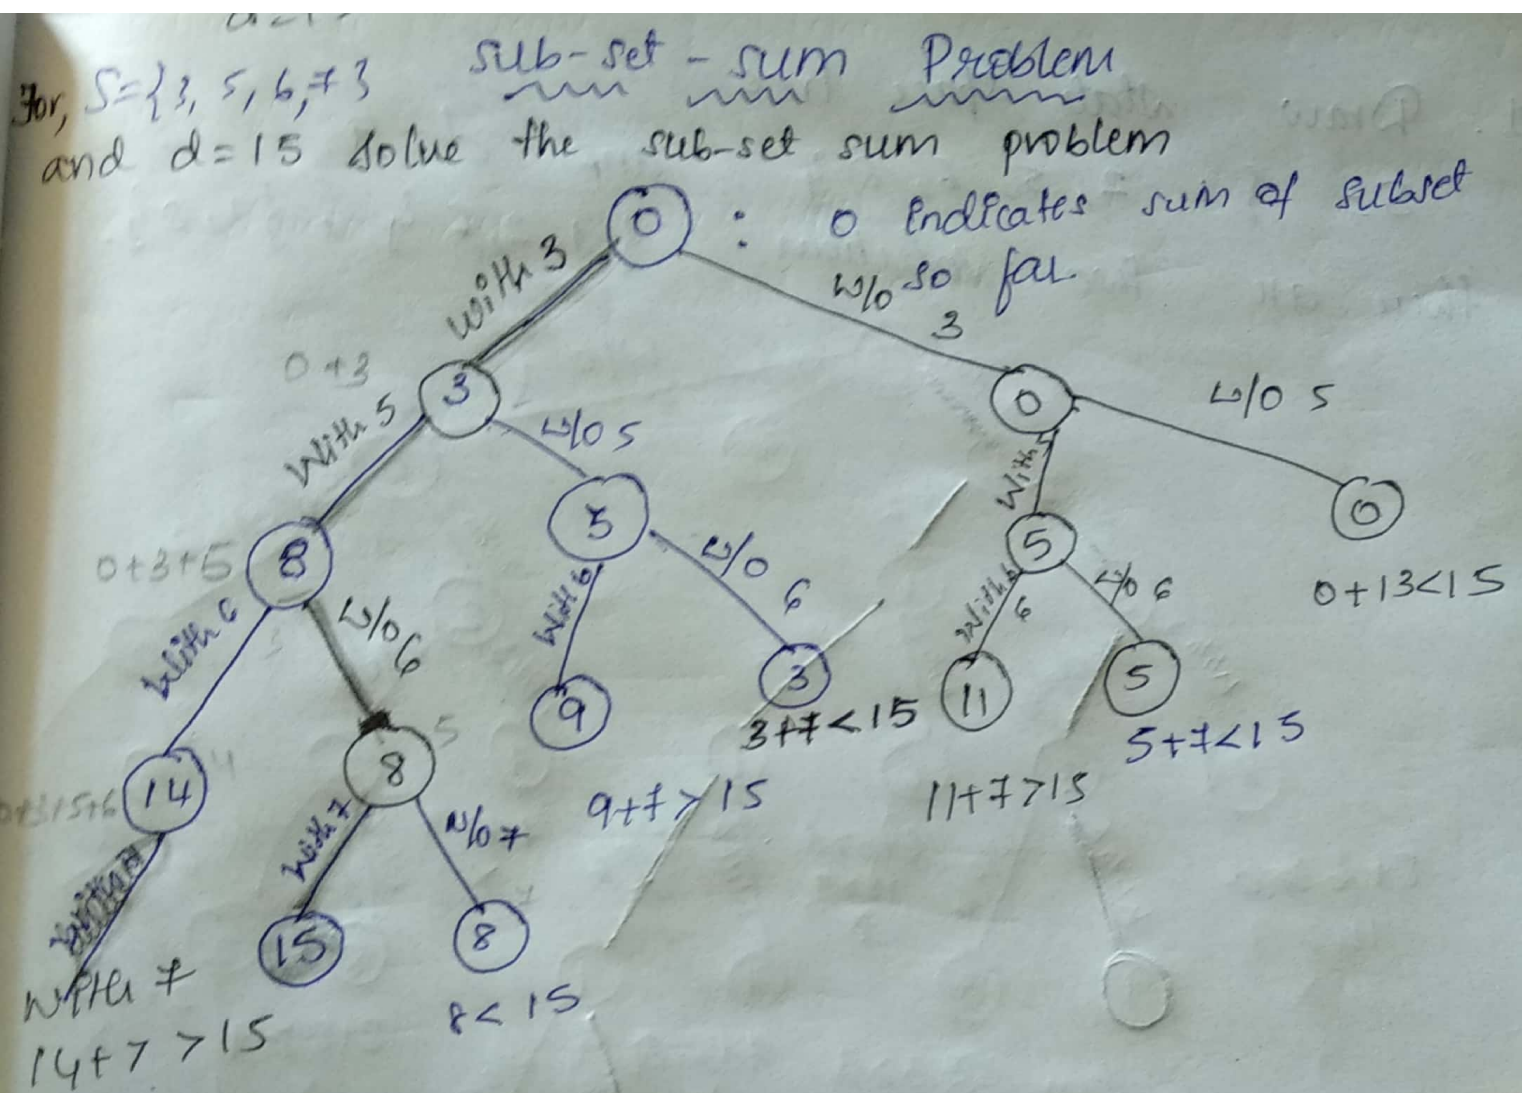 sub-set-sum Problem
For, S={3, 5, 6, 7}
and d=15 solve the sub-set sum problem
0 : 0 indicates sum of subset
so far
with 3
w/o
3
0+3
3
0
With 5
w/o 5
With 5
w/o 5
0+3+5
8
5
5
0
0+13<15
with 6
w/o 6
with 6
w/o 6
with 6
w/o 6
0+3+5+6
14
8
9
3
11
5
3+7<15
5+7<15
9+7>15
11+7>15
with 7
w/o 7
15
8
with 7
14+7>15
8<15